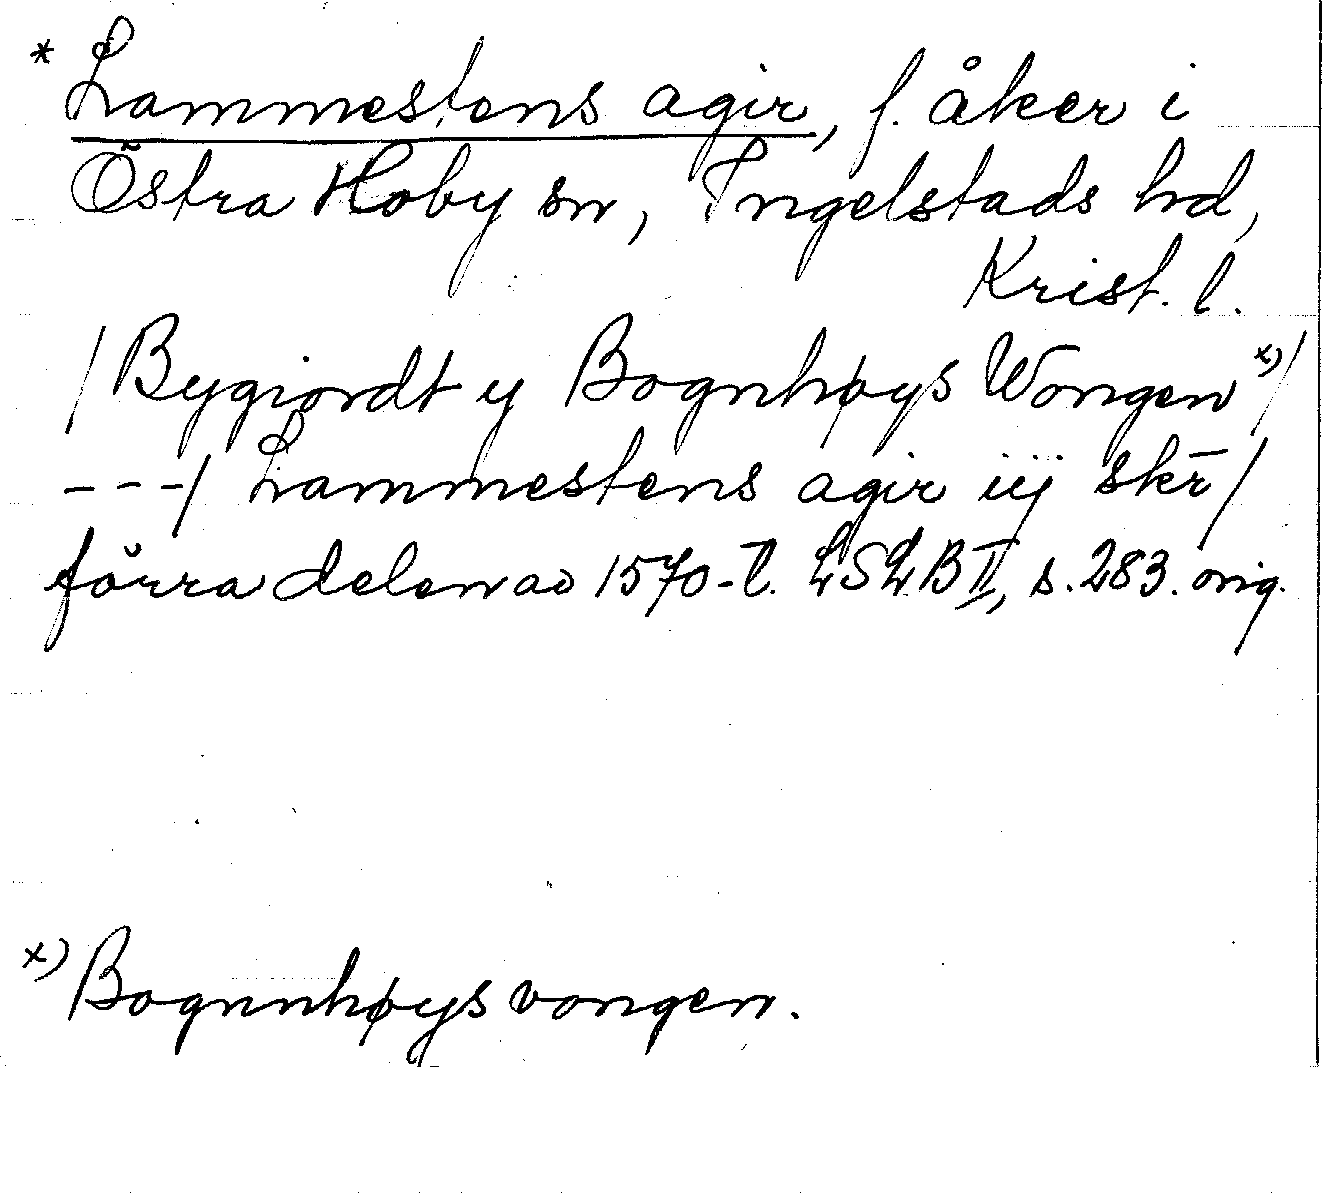 * Lammestens agir, f. åker i
Östra Hoby sn, Ingelstads hd,
Krist. l.
/Bygiordt y Bognhøys Wongen x)/
---/ Lammestens agir iij skr̄/
förra delen av 1570-t. LSLB II, s. 283. orig.
x) Bognnhøys vongen.